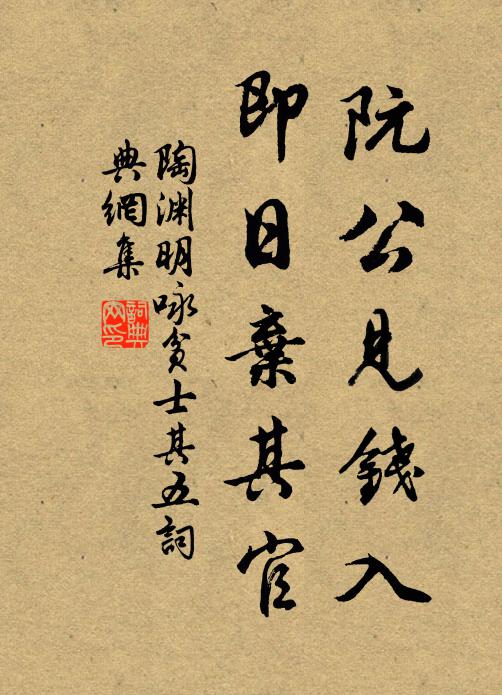 阮公見錢入
即日棄其官
陶渊明咏貧士其五詞
典網集
詞典網印